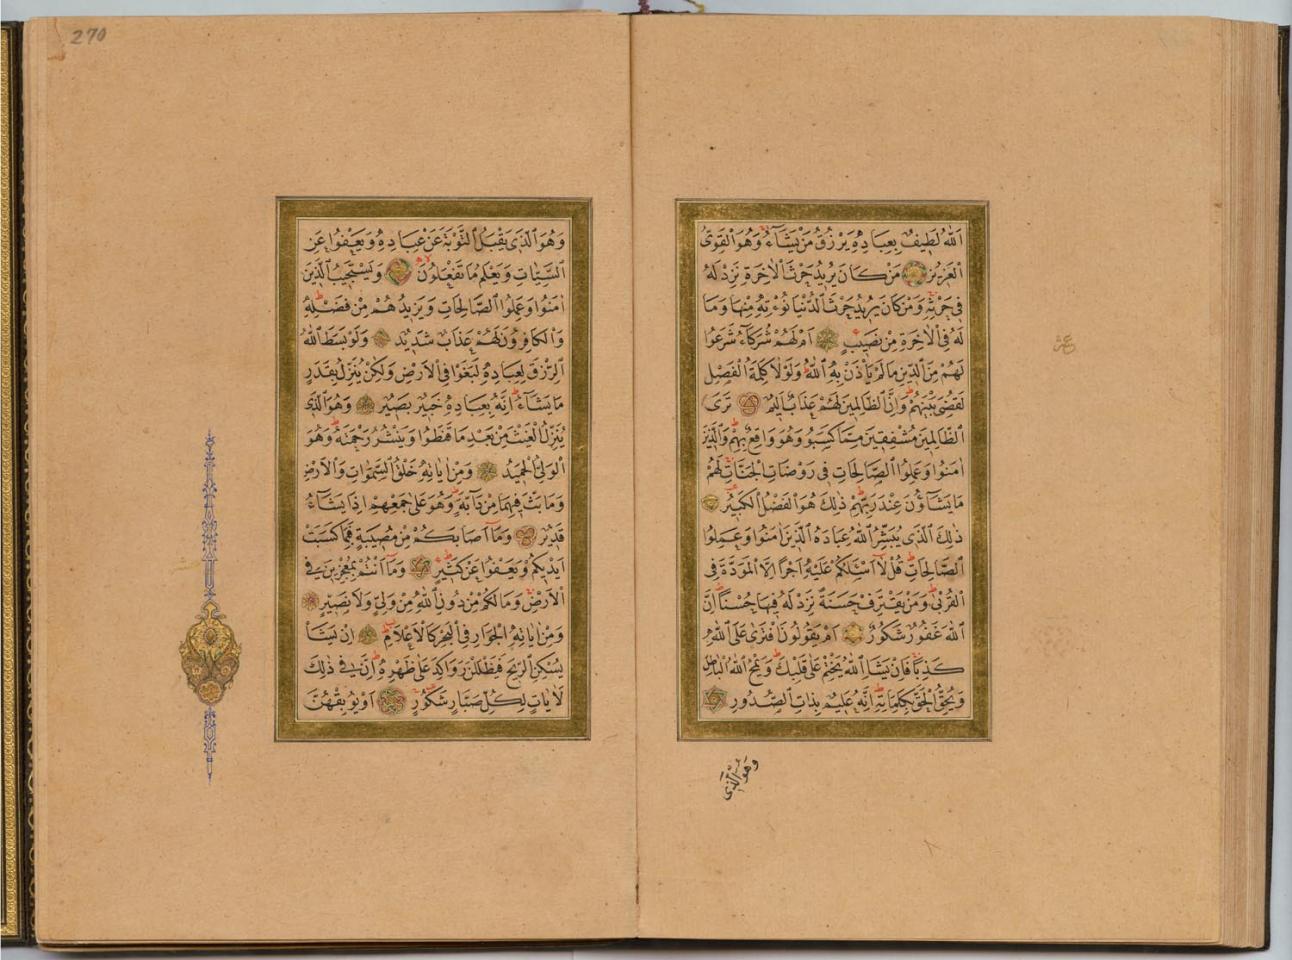 اَللّٰهُ لَطِيفٌ بِعِبَادِهِ يَرْزُقُ مَنْ يَشَاءُ وَهُوَ الْقَوِىُّ
الْعَزِيزُ مَنْ كَانَ يُرِيدُ حَرْثَ الْاٰخِرَةِ نَزِدْ لَهُ
فِى حَرْثِهِ وَمَنْ كَانَ يُرِيدُ حَرْثَ الدُّنْيَا نُؤْتِهِ مِنْهَا وَمَا
لَهُ فِى الْاٰخِرَةِ مِنْ نَصِيبٍ اَمْ لَهُمْ شُرَكَاءُ شَرَعُوا
لَهُمْ مِنَ الدِّينِ مَا لَمْ يَأْذَنْ بِهِ اللّٰهُ وَلَوْلَا كَلِمَةُ الْفَصْلِ
لَقُضِىَ بَيْنَهُمْ وَاِنَّ الظَّالِمِينَ لَهُمْ عَذَابٌ اَلِيمٌ تَرَى
الظَّالِمِينَ مُشْفِقِينَ مِمَّا كَسَبُوا وَهُوَ وَاقِعٌ بِهِمْ وَالَّذِينَ
اٰمَنُوا وَعَمِلُوا الصَّالِحَاتِ فِى رَوْضَاتِ الْجَنَّاتِ لَهُمْ
مَا يَشَاؤُنَ عِنْدَ رَبِّهِمْ ذٰلِكَ هُوَ الْفَضْلُ الْكَبِيرُ
ذٰلِكَ الَّذِى يُبَشِّرُ اللّٰهُ عِبَادَهُ الَّذِينَ اٰمَنُوا وَعَمِلُوا
الصَّالِحَاتِ قُلْ لَا اَسْئَلُكُمْ عَلَيْهِ اَجْرًا اِلَّا الْمَوَدَّةَ فِى
الْقُرْبٰى وَمَنْ يَقْتَرِفْ حَسَنَةً نَزِدْ لَهُ فِيهَا حُسْنًا اِنَّ
اللّٰهَ غَفُورٌ شَكُورٌ اَمْ يَقُولُونَ افْتَرٰى عَلَى اللّٰهِ
كَذِبًا فَاِنْ يَشَاِ اللّٰهُ يَخْتِمْ عَلٰى قَلْبِكَ وَيَمْحُ اللّٰهُ الْبَاطِلَ
وَيُحِقُّ الْحَقَّ بِكَلِمَاتِهِ اِنَّهُ عَلِيمٌ بِذَاتِ الصُّدُورِ
وَهُوَ الَّذِى
عشر
270
وَهُوَ الَّذِى يَقْبَلُ التَّوْبَةَ عَنْ عِبَادِهِ وَيَعْفُوا عَنِ
السَّيِّئَاتِ وَيَعْلَمُ مَا تَفْعَلُونَ وَيَسْتَجِيبُ الَّذِينَ
اٰمَنُوا وَعَمِلُوا الصَّالِحَاتِ وَيَزِيدُهُمْ مِنْ فَضْلِهِ
وَالْكَافِرُونَ لَهُمْ عَذَابٌ شَدِيدٌ وَلَوْ بَسَطَ اللّٰهُ
الرِّزْقَ لِعِبَادِهِ لَبَغَوْا فِى الْاَرْضِ وَلٰكِنْ يُنَزِّلُ بِقَدَرٍ
مَا يَشَاءُ اِنَّهُ بِعِبَادِهِ خَبِيرٌ بَصِيرٌ وَهُوَ الَّذِى
يُنَزِّلُ الْغَيْثَ مِنْ بَعْدِ مَا قَنَطُوا وَيَنْشُرُ رَحْمَتَهُ وَهُوَ
الْوَلِىُّ الْحَمِيدُ وَمِنْ اٰيَاتِهِ خَلْقُ السَّمٰوَاتِ وَالْاَرْضِ
وَمَا بَثَّ فِيهِمَا مِنْ دَابَّةٍ وَهُوَ عَلٰى جَمْعِهِمْ اِذَا يَشَاءُ
قَدِيرٌ وَمَا اَصَابَكُمْ مِنْ مُصِيبَةٍ فَبِمَا كَسَبَتْ
اَيْدِيكُمْ وَيَعْفُوا عَنْ كَثِيرٍ وَمَا اَنْتُمْ بِمُعْجِزِينَ فِى
الْاَرْضِ وَمَا لَكُمْ مِنْ دُونِ اللّٰهِ مِنْ وَلِىٍّ وَلَا نَصِيرٍ
وَمِنْ اٰيَاتِهِ الْجَوَارِ فِى الْبَحْرِ كَالْاَعْلَامِ اِنْ يَشَأْ
يُسْكِنِ الرِّيحَ فَيَظْلَلْنَ رَوَاكِدَ عَلٰى ظَهْرِهِ اِنَّ فِى ذٰلِكَ
لَاٰيَاتٍ لِكُلِّ صَبَّارٍ شَكُورٍ اَوْ يُوبِقْهُنَّ